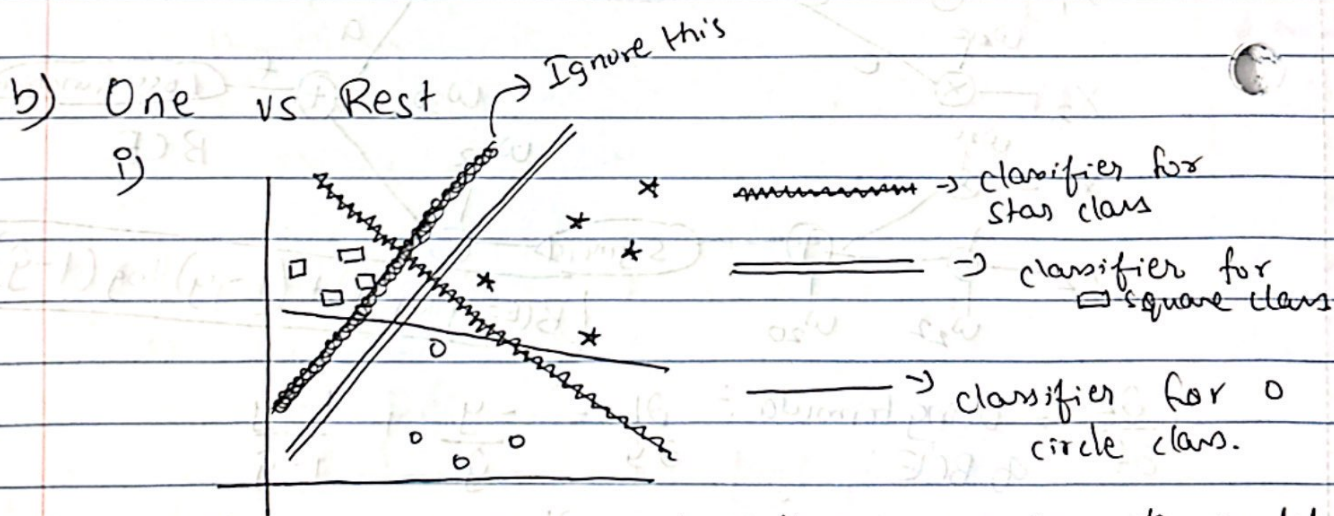 Ignore this
b) One vs Rest
i)
→ classifier for
star class
→ classifier for
□ square class
→ classifier for o
circle class.